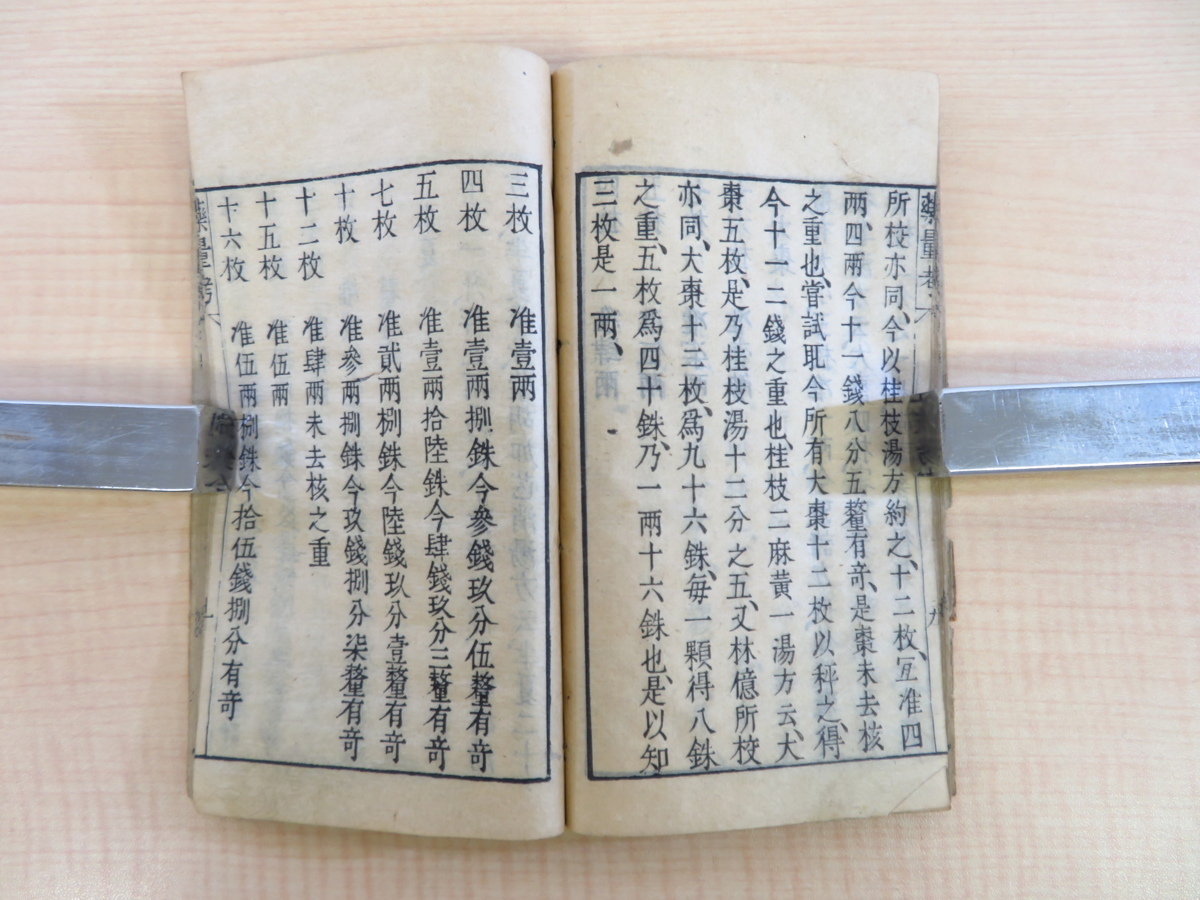 藥量考
所校亦同、今以桂枝湯方約之、十二枚、冝准四
兩、四兩今十一錢八分五釐有竒、是棗未去核
之重也、嘗試取今所有大棗十二枚以秤之、得
今十一二錢之重也、桂枝二麻黄一湯方云、大
棗五枚、是乃桂枝湯十二分之五、又林億所校
亦同、大棗十二枚、爲九十六銖、每一顆得八銖
之重、五枚爲四十銖、乃一兩十六銖也、是以知
三枚是一兩、
三枚 准壹兩
四枚 准壹兩捌銖今參錢玖分伍釐有竒
五枚 准壹兩拾陸銖今肆錢玖分三釐有竒
七枚 准貳兩捌銖今陸錢玖分壹釐有竒
十枚 准參兩捌銖今玖錢捌分柒釐有竒
十二枚 准肆兩未去核之重
十五枚 准伍兩
十六枚 准伍兩捌銖今拾伍錢捌分有竒
藥量考